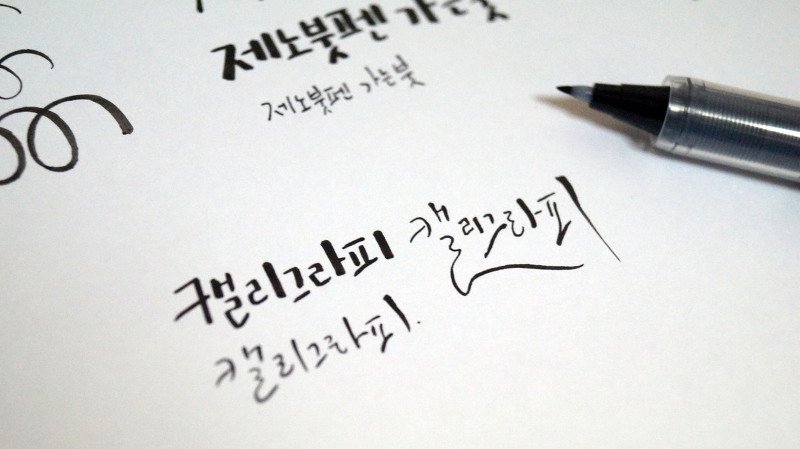 제노붓펜 가는붓
제노붓펜 가는붓
캘리그라피 캘리그라피
캘리그라피.